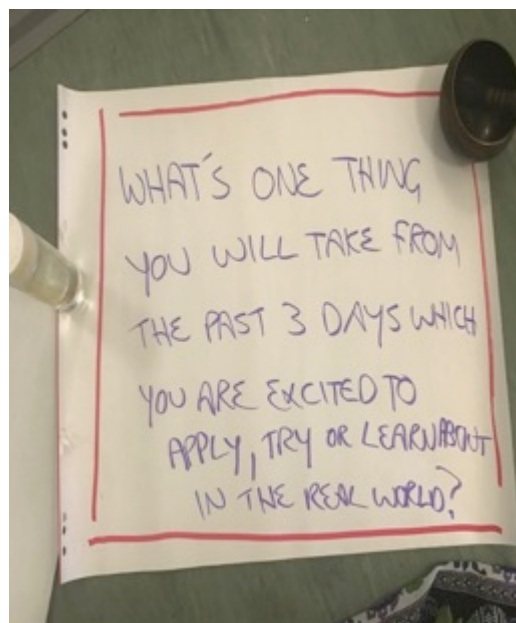 WHAT'S ONE THING
YOU WILL TAKE FROM
THE PAST 3 DAYS WHICH
YOU ARE EXCITED TO
APPLY, TRY OR LEARN ABOUT
IN THE REAL WORLD?